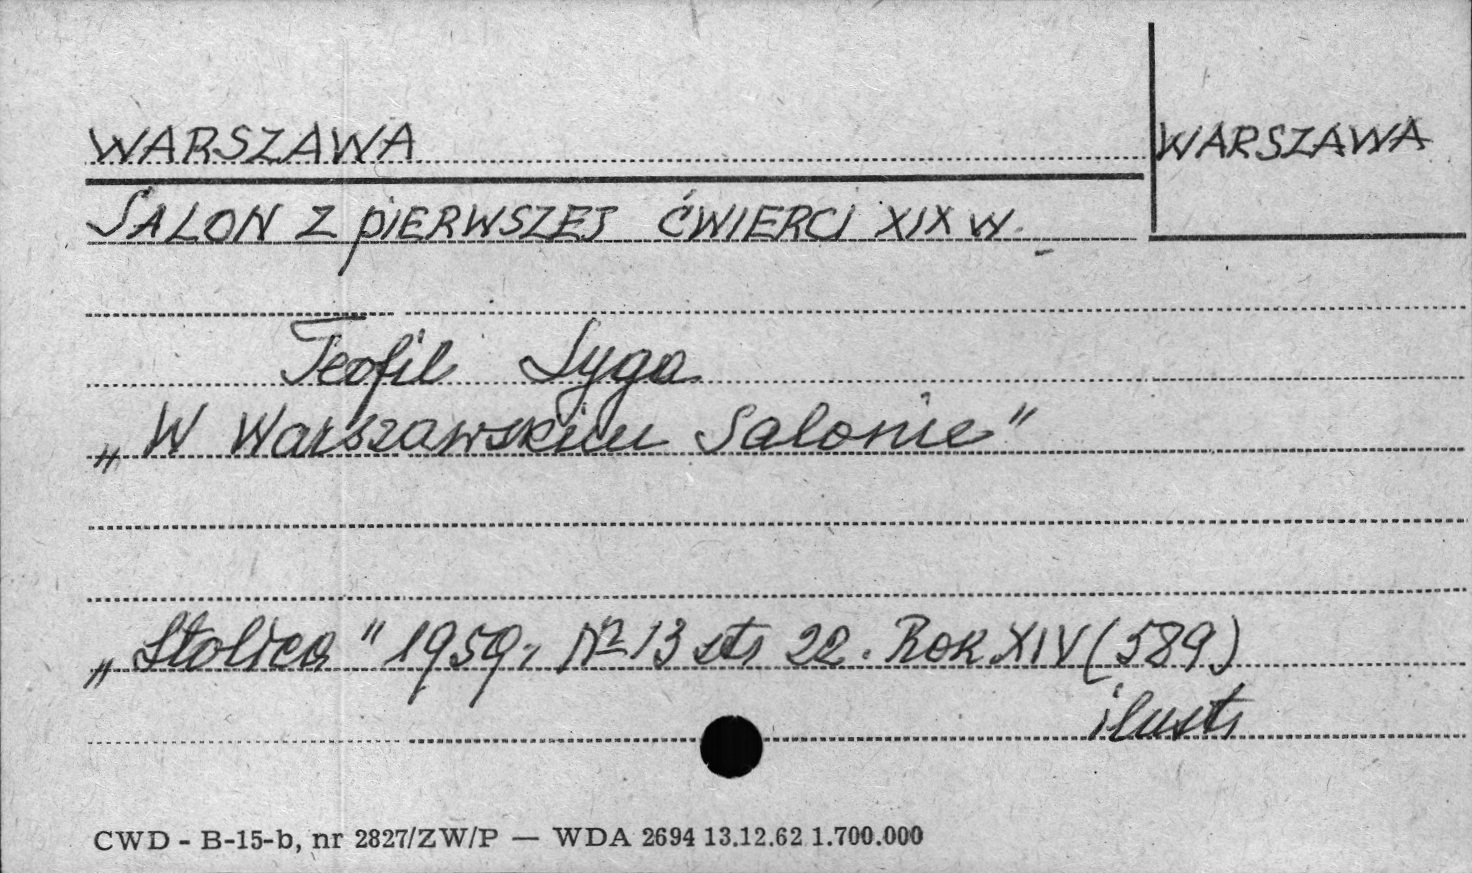 WARSZAWA
WARSZAWA
SALON Z PIERWSZEJ ĆWIERCI XIX W.
Teofil Syga
„W Warszawskim Salonie"
„Stolica" 1959, № 13 str 22. Rok XIV (589)
ilustr
CWD - B-15-b, nr 2827/ZW/P — WDA 2694 13.12.62 1.700.000